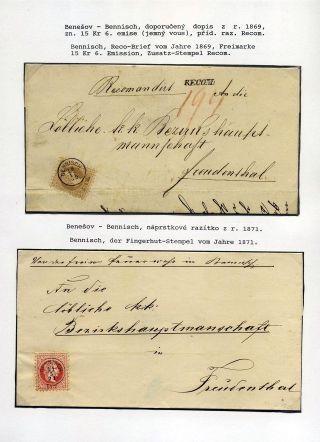 Benešov - Bennisch, doporučený dopis z r. 1869,
zn. 15 Kr 6. emise (jemný vous), příd. raz. Recom.
Bennisch, Reco-Brief vom Jahre 1869, Freimarke
15 Kr 6. Emission, Zusatz-Stempel Recom.
RECOM.
Recomandirt An die
Löbliche k.k. Bezirkshaupt
mannschaft
Freudenthal
Benešov - Bennisch, náprstkové razítko z r. 1871.
Bennisch, der Fingerhut-Stempel vom Jahre 1871.
An die
löbliche k.k.
Bezirkshauptmanschaft
in
Freudenthal